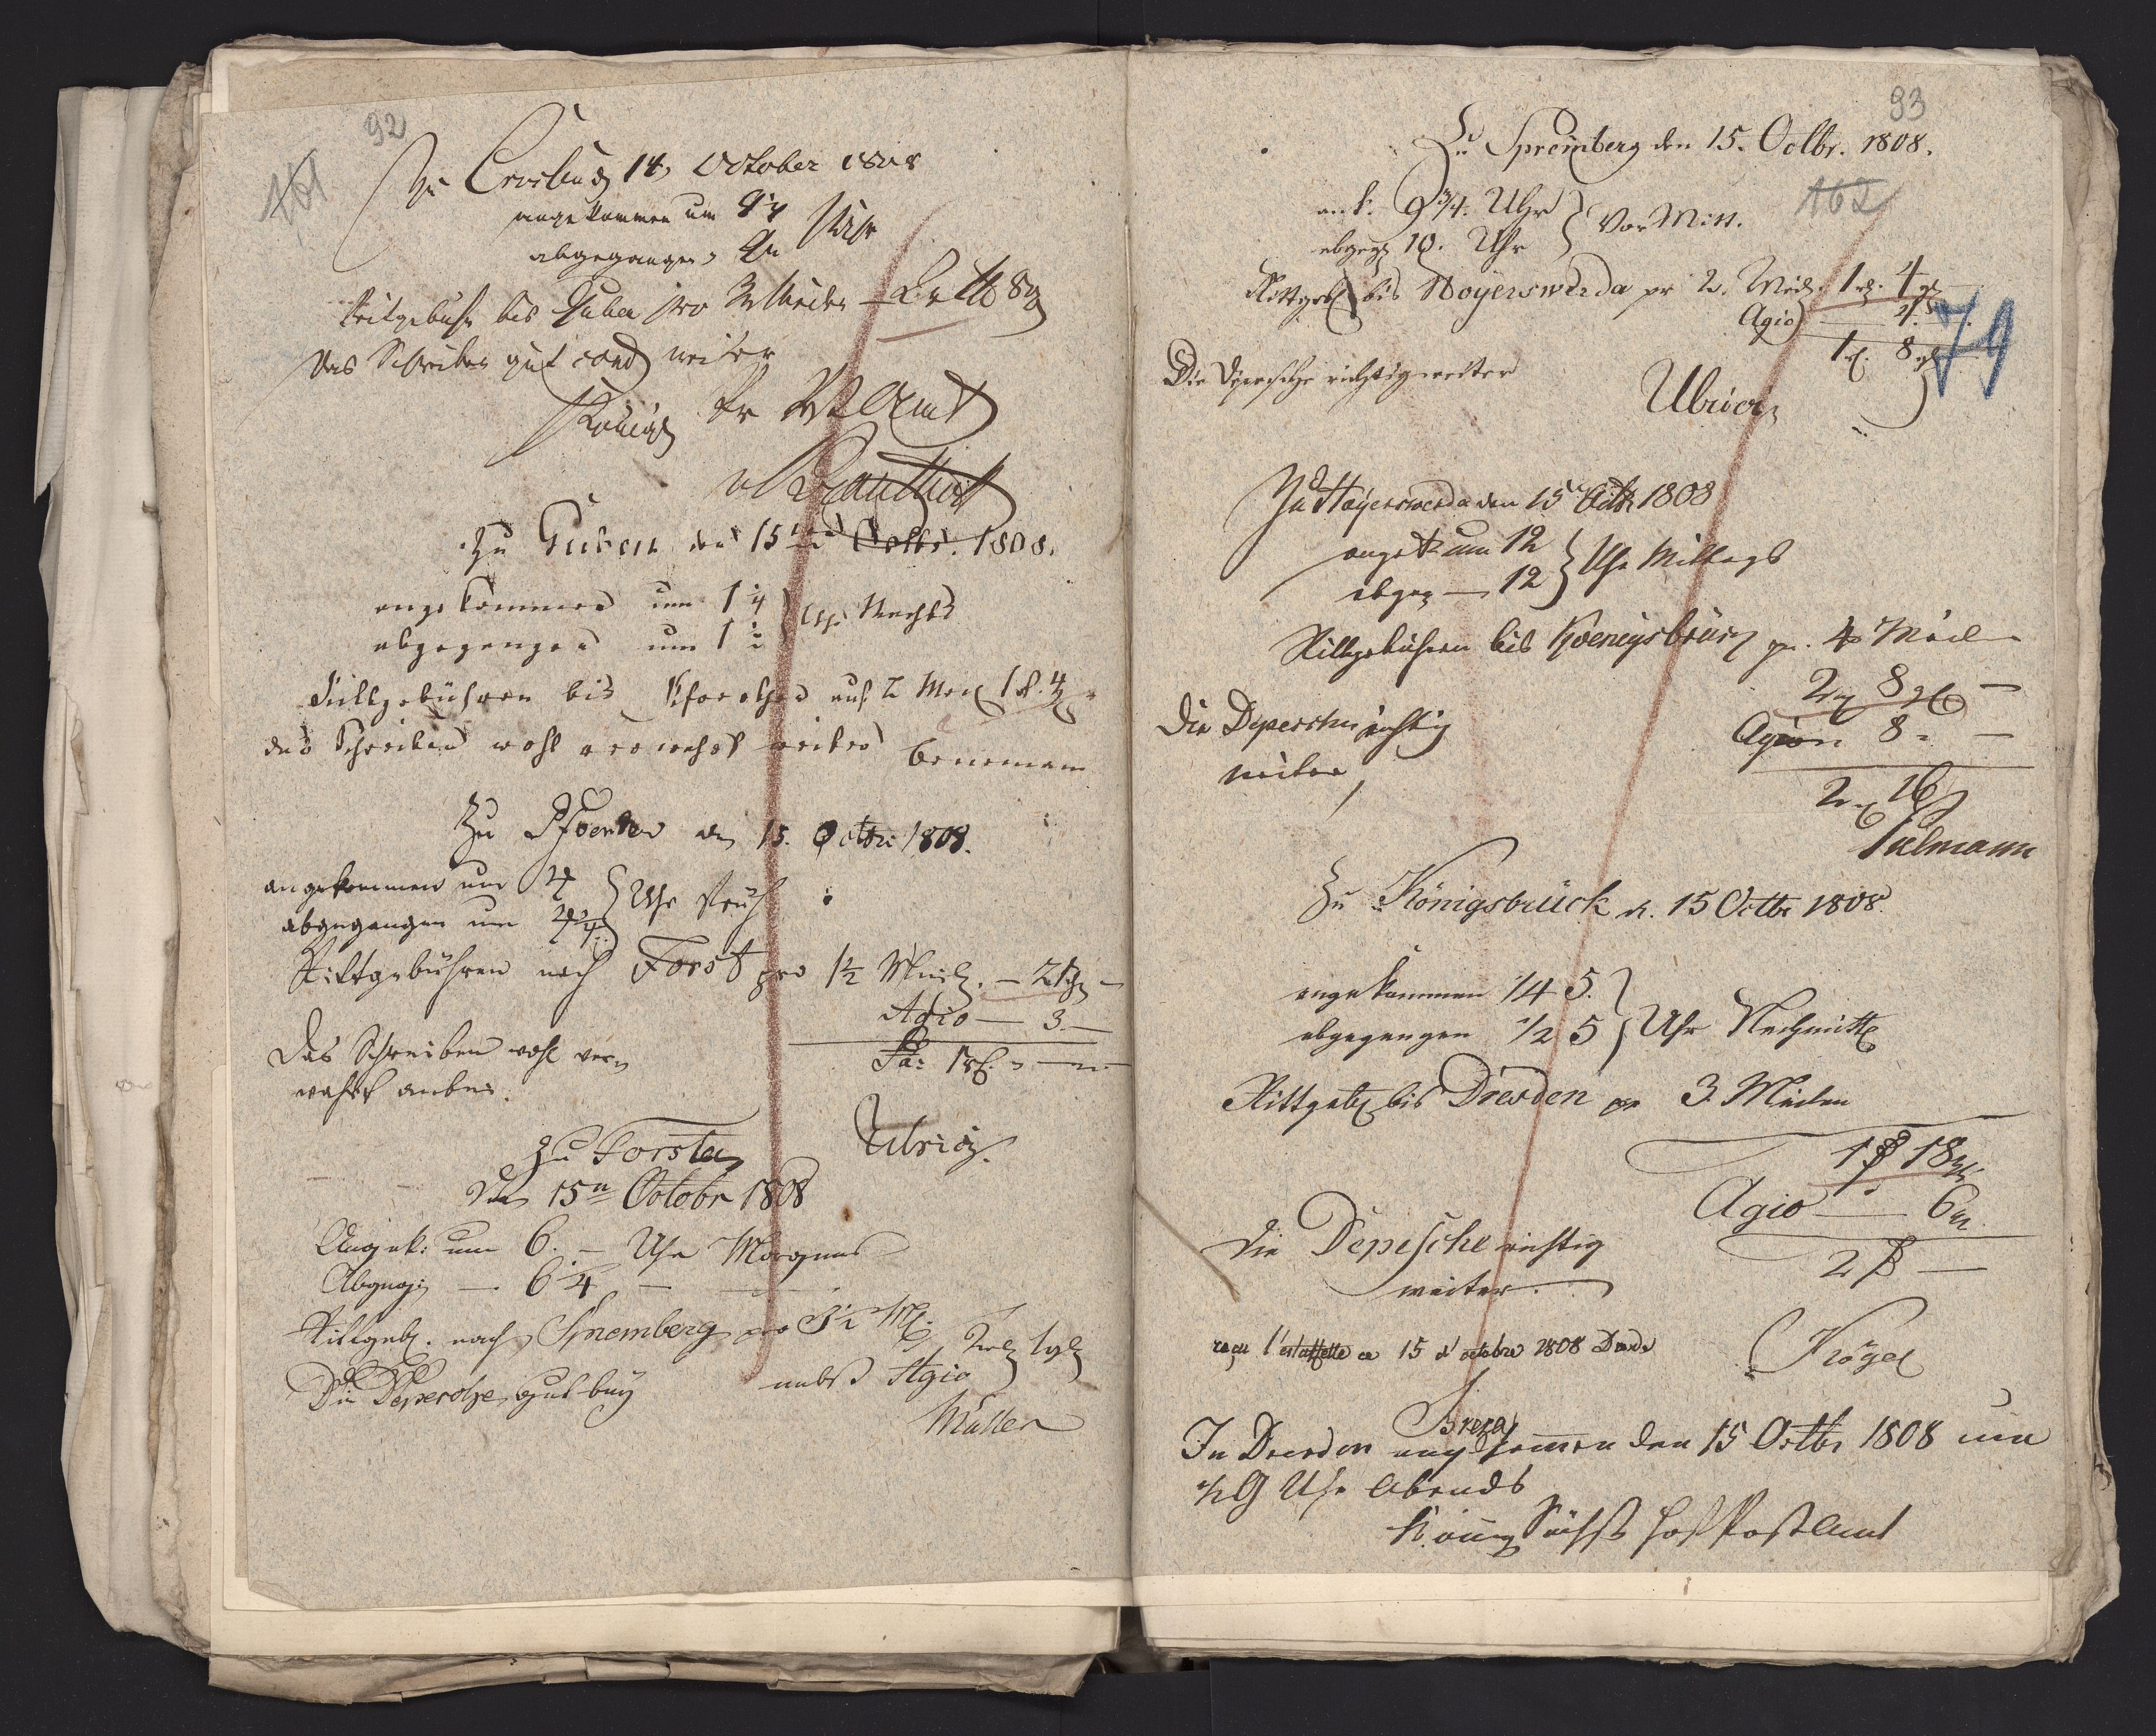 92
161
Zu Crossen d 14 October 1808
angekommen um 9 1/4
abgegangen 9 1/2 Uhr
Reitgebühr bis Guben pro Meilen 2 rtl 8 g
das Schreiben gut cond weiter
König Pr Amt
Zu Guben den 15ten Octbr. 1808.
angekommen um 1 1/4
abgegangen um 1 1/2 Uhr Nachts
Rittgebühren bis Pfoerthen auf 2 Meil 1 rl. 4
das Schreiben wohl verwahrt weiter
Zu Pfoerten den 15. Octbr 1808.
angekommen um 4
abgegangen um 4 1/4 Uhr Früh
Rittgebühren nach Forst pro 1 1/2 Meil. — 21 g —
Agio — 3. —
Sa: 1 rl. — —
Das Schreiben wohl ver=
wahrt anbei.
Ulrici.
Zu Forsta
Den 15n Octobr 1808
Angek: um 6. — Uhr Morgens
Abgegg — 6 1/4 —
Rittgeb. nach Spremberg pro 3 1/2 Ml.
nebst Agio
Die Depesche gut bey
Müller
93
162
Zu Spremberg den 15. Octbr. 1808.
ank. 9 3/4. Uhr
abgeg 10. Uhr } Vor Mitt.
Rittgeb bis Hoyerswerda pr 2. Meil. 1 rl. 4 gl
Agio — 4.
1 rl. 8 gl
79
Die Depesche richtig weiter
Ulrici
Zu Hoyerswerda den 15 Octbr 1808
angek um 12
abgeg — 12 } Uhr Mittags
Rittgebühren bis Koenigsbrück pr. 4 Meil
2 rl 8 gl —
Agio 8 " —
2 rl 16
Die Depeschen richtig
weiter
Zu Königsbrück d. 15 Octbr 1808.
angekommen 1/4 5.
abgegangen 1/2 5 } Uhr Nachmitt
Rittgeb bis Dresden pr 3. Meilen
1 rl 18 gl
Agio — 6 gl
2 rl —
Die Depesche richtig
weiter.
Kögel
reçu l'estaffette ce 15 d'octobre 1808 Dresde
Breza
In Dresden angekommen den 15 Octbr 1808 um
1/2 9 Uhr Abends
König Sächß Hof Post Amt